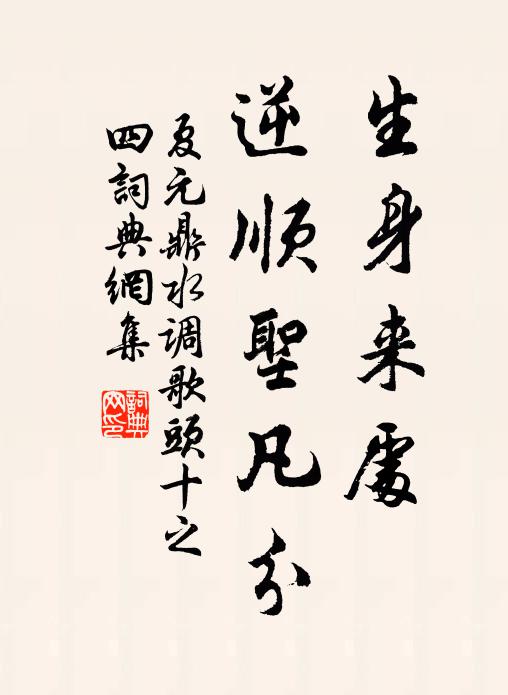 生身来處
逆順聖凡分
夏元鼎水调歌頭十之
四詞典網集
詞典网印